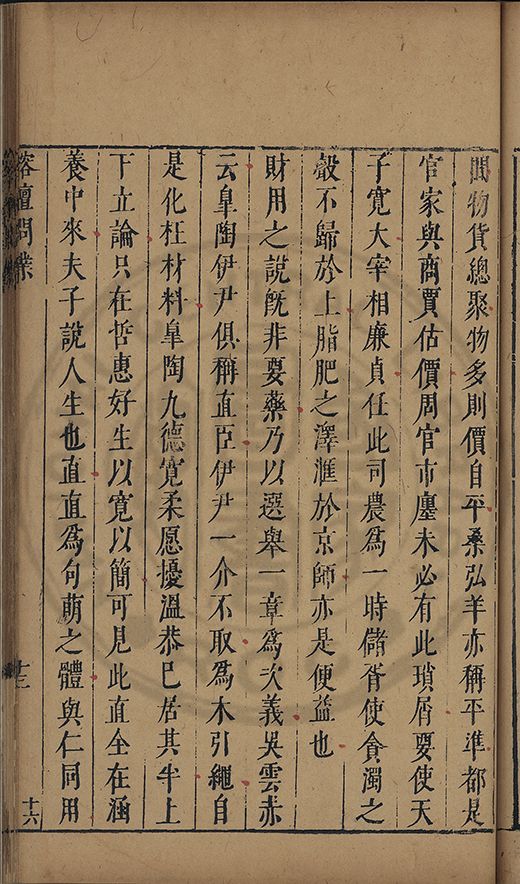 間物貨總聚物多則價自平桑弘羊亦稱平準都是
官家與商賈估價周官市廛未必有此瑣屑要使天
子寬大宰相廉貞任此司農為一時儲胥使貪濁之
聲不歸於上脂肥之澤滙於京師亦是便益也
財用之說旣非要藥乃以選舉一章為次義吳雲赤
云皐陶伊尹俱稱直臣伊尹一介不取為木引繩自
是化枉材料皐陶九德寛柔愿擾溫恭巳居其半上
下立論只在哲惠好生以寛以簡可見此直全在涵
養中來夫子說人生也直直為句萌之體與仁同用
榕壇問業
十六